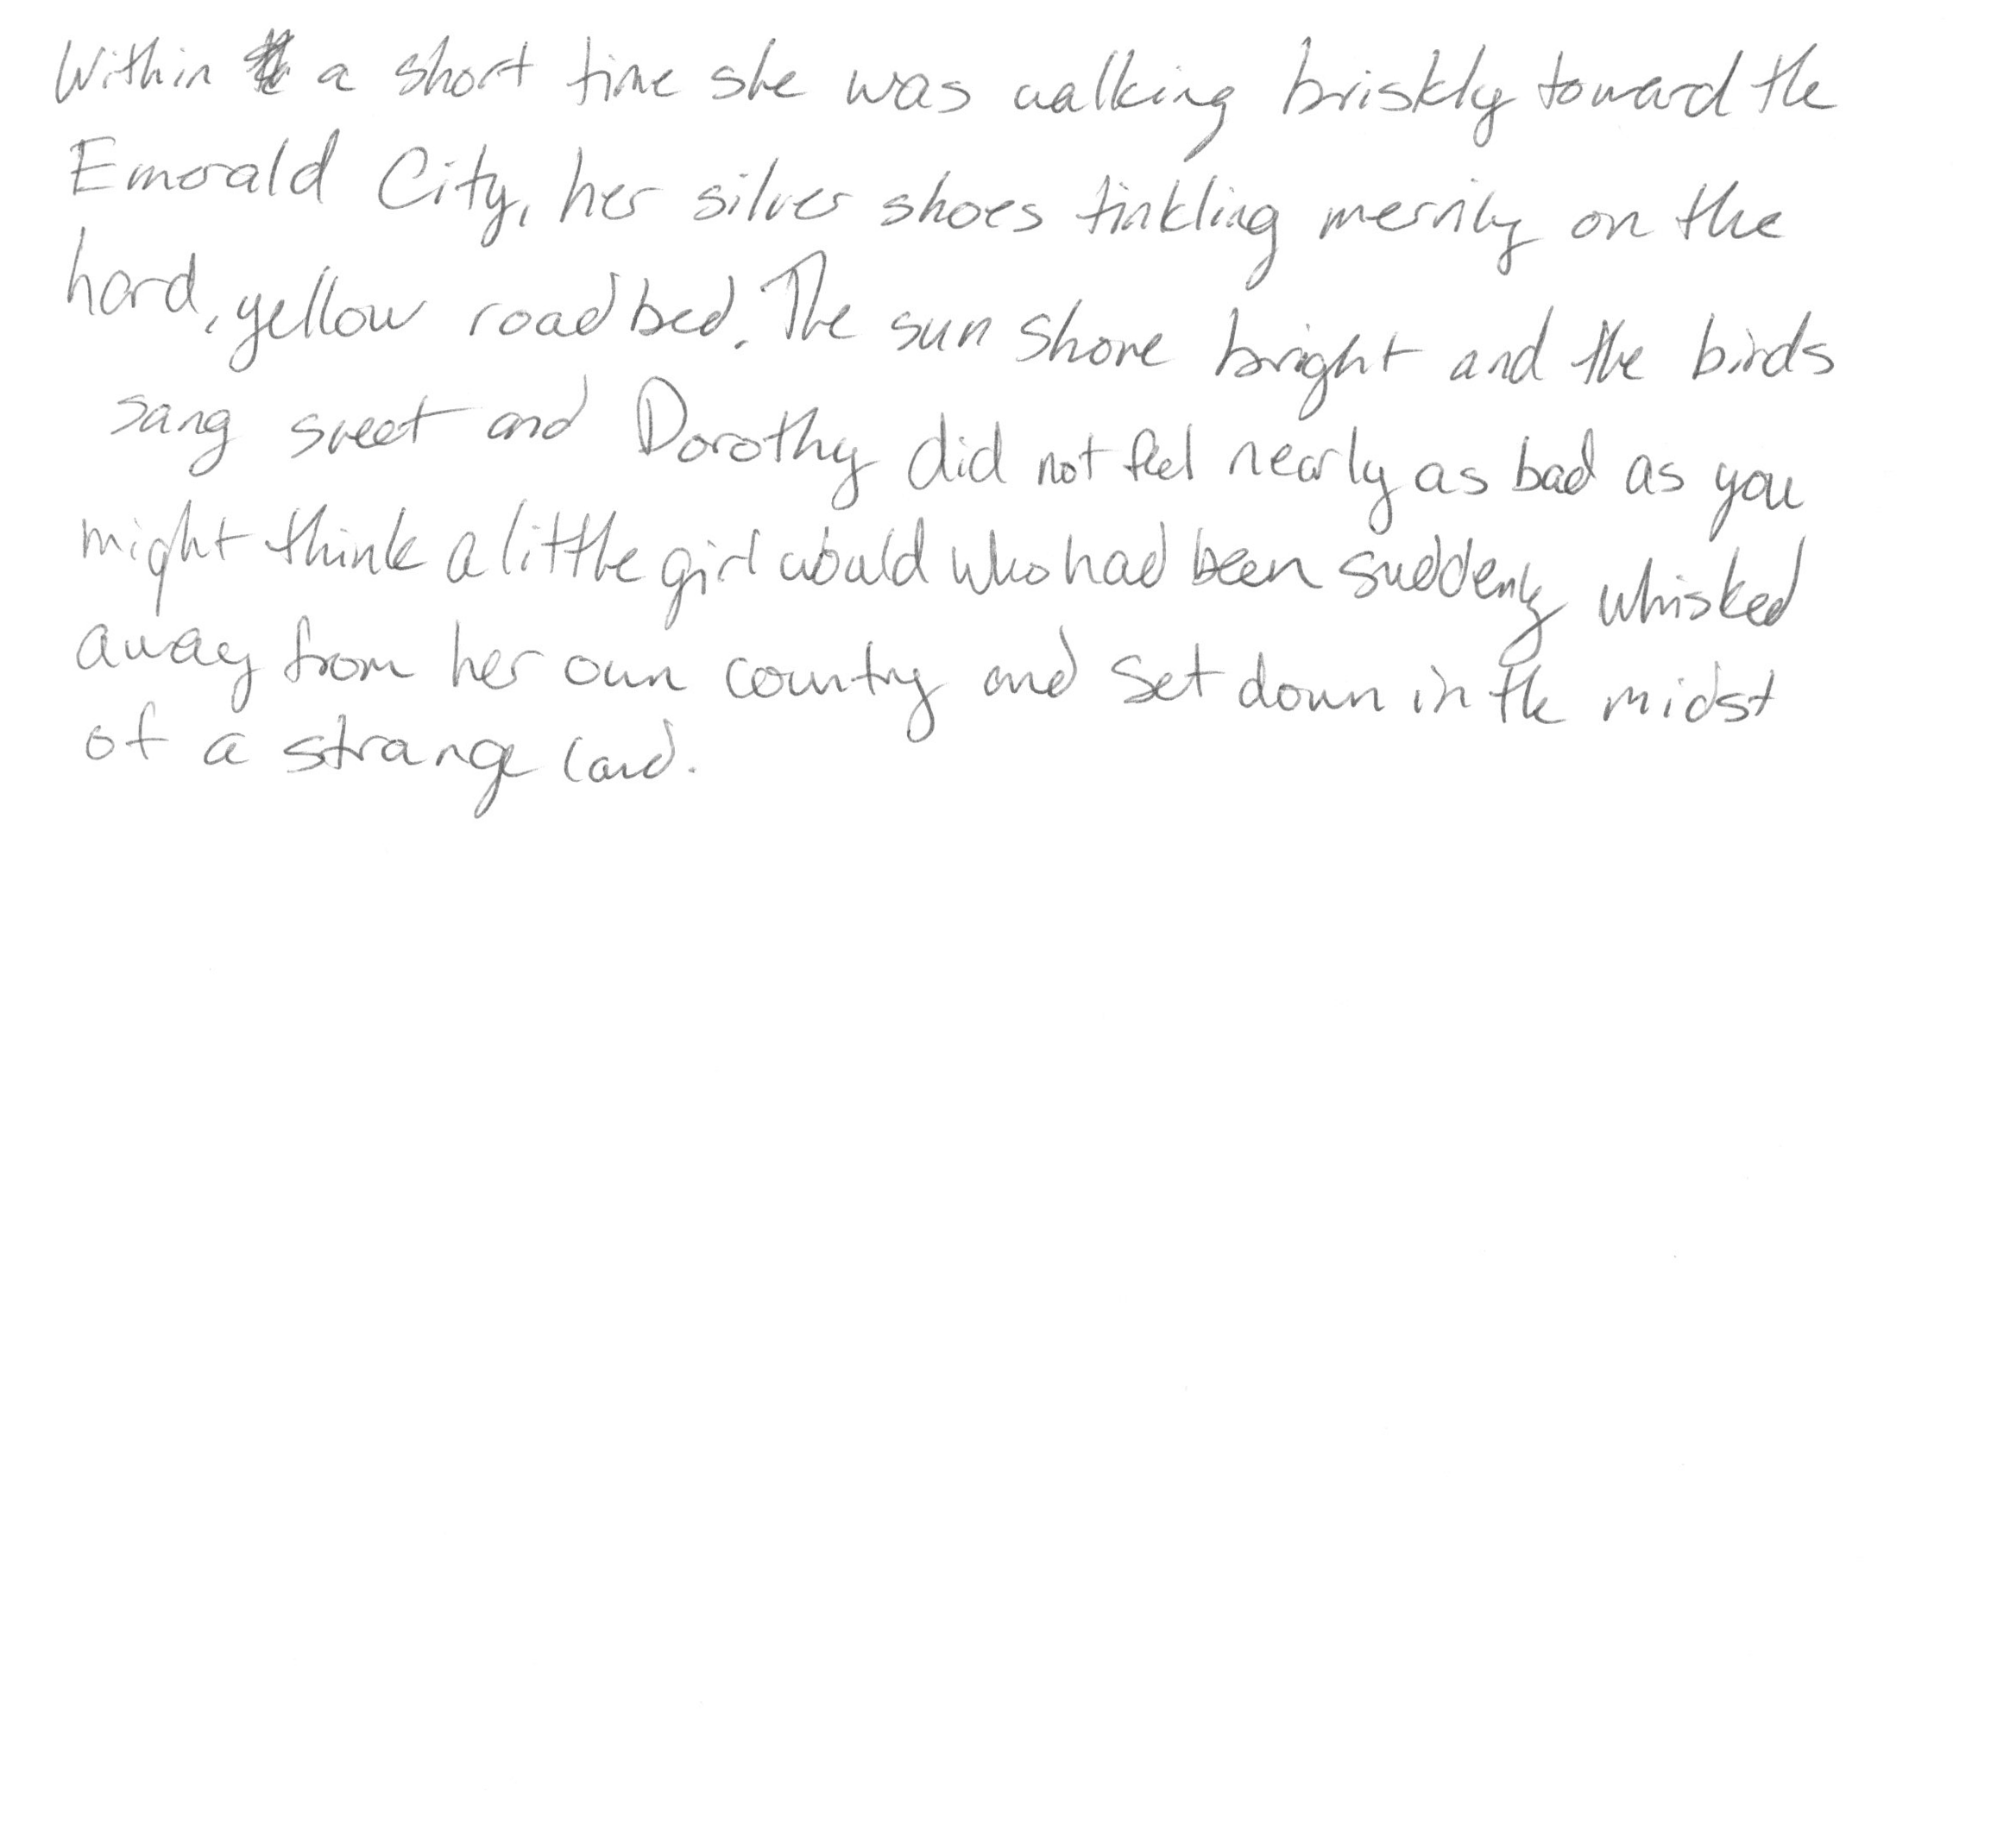 Within a short time she was walking briskly toward the
Emerald City, her silver shoes tinkling merrily on the
hard, yellow roadbed. The sun shone bright and the birds
sang sweet and Dorothy did not feel nearly as bad as you
might think a little girl would who had been suddenly whisked
away from her own country and set down in the midst
of a strange land.